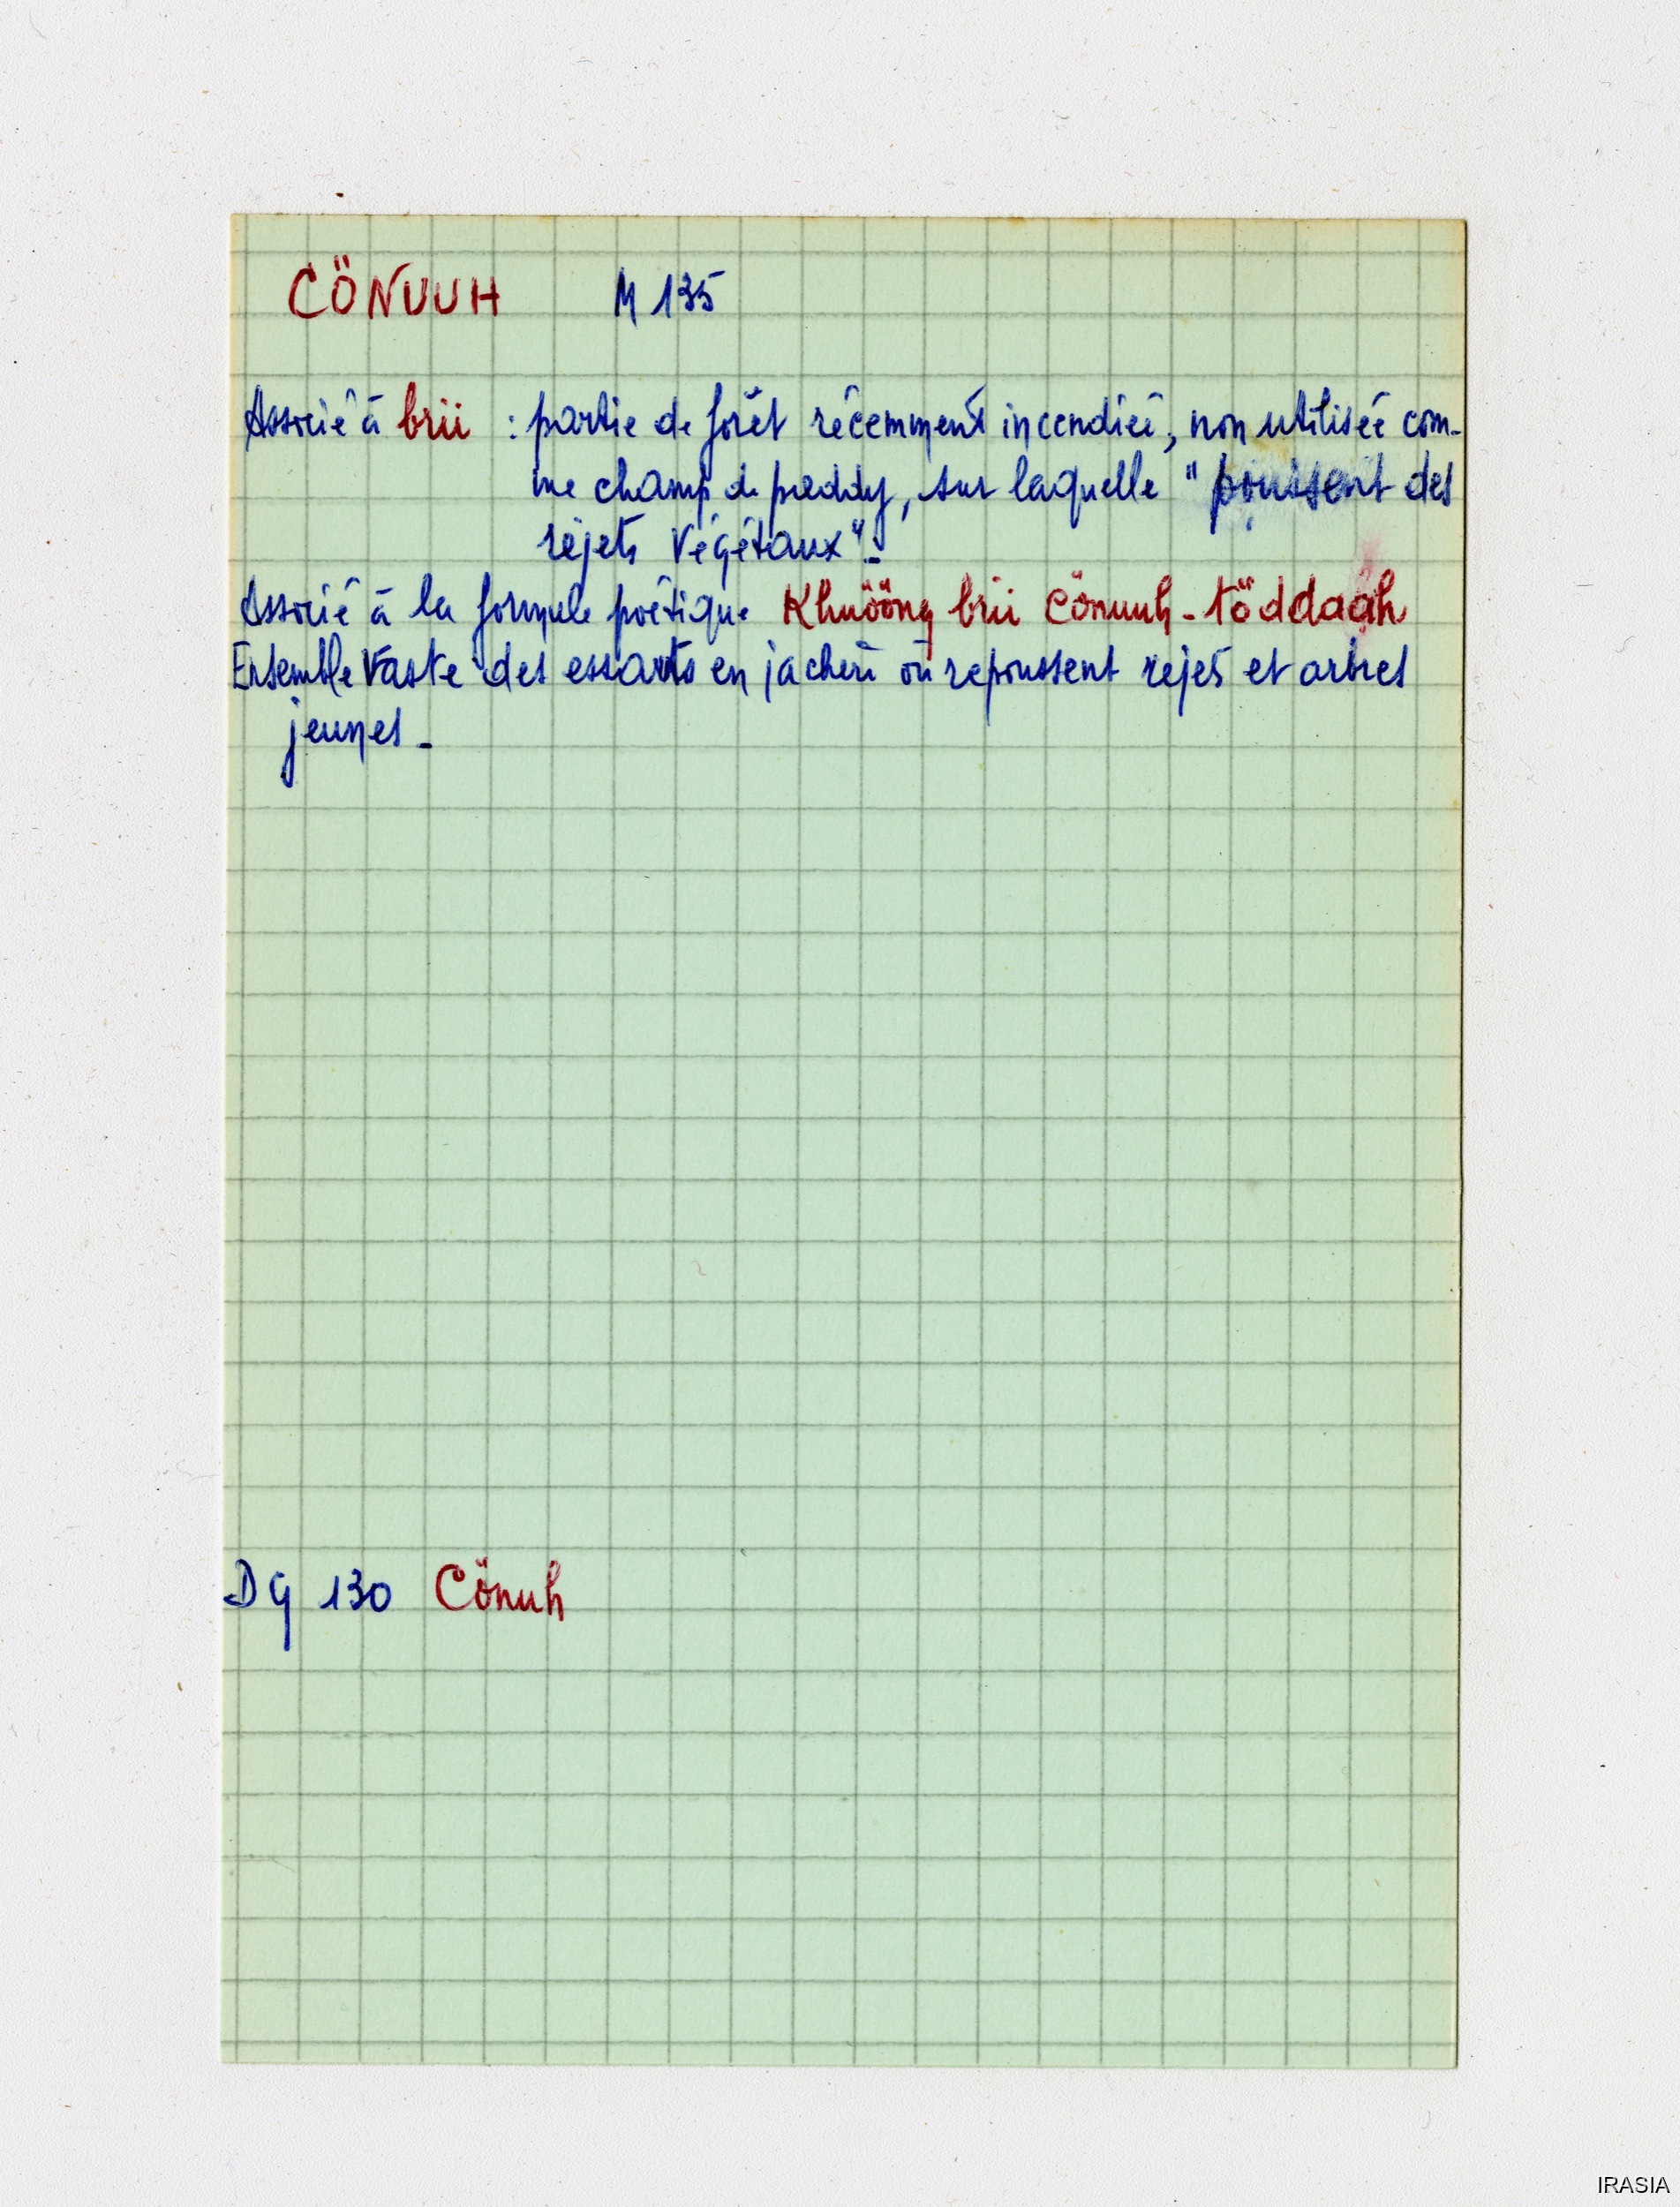 CÖNUUH M 135
Associé à brii : partie de forêt récemment incendiée, non utilisée com-
me champ de paddy, sur laquelle "poussent des
rejets végétaux".-
Associé à la formule poétique Khuööng brii Cönuuh - töddaah
Ensemble vaste des essarts en jachère où repoussent rejets et arbres
jeunes -
DG 130 Cönuh
IRASIA